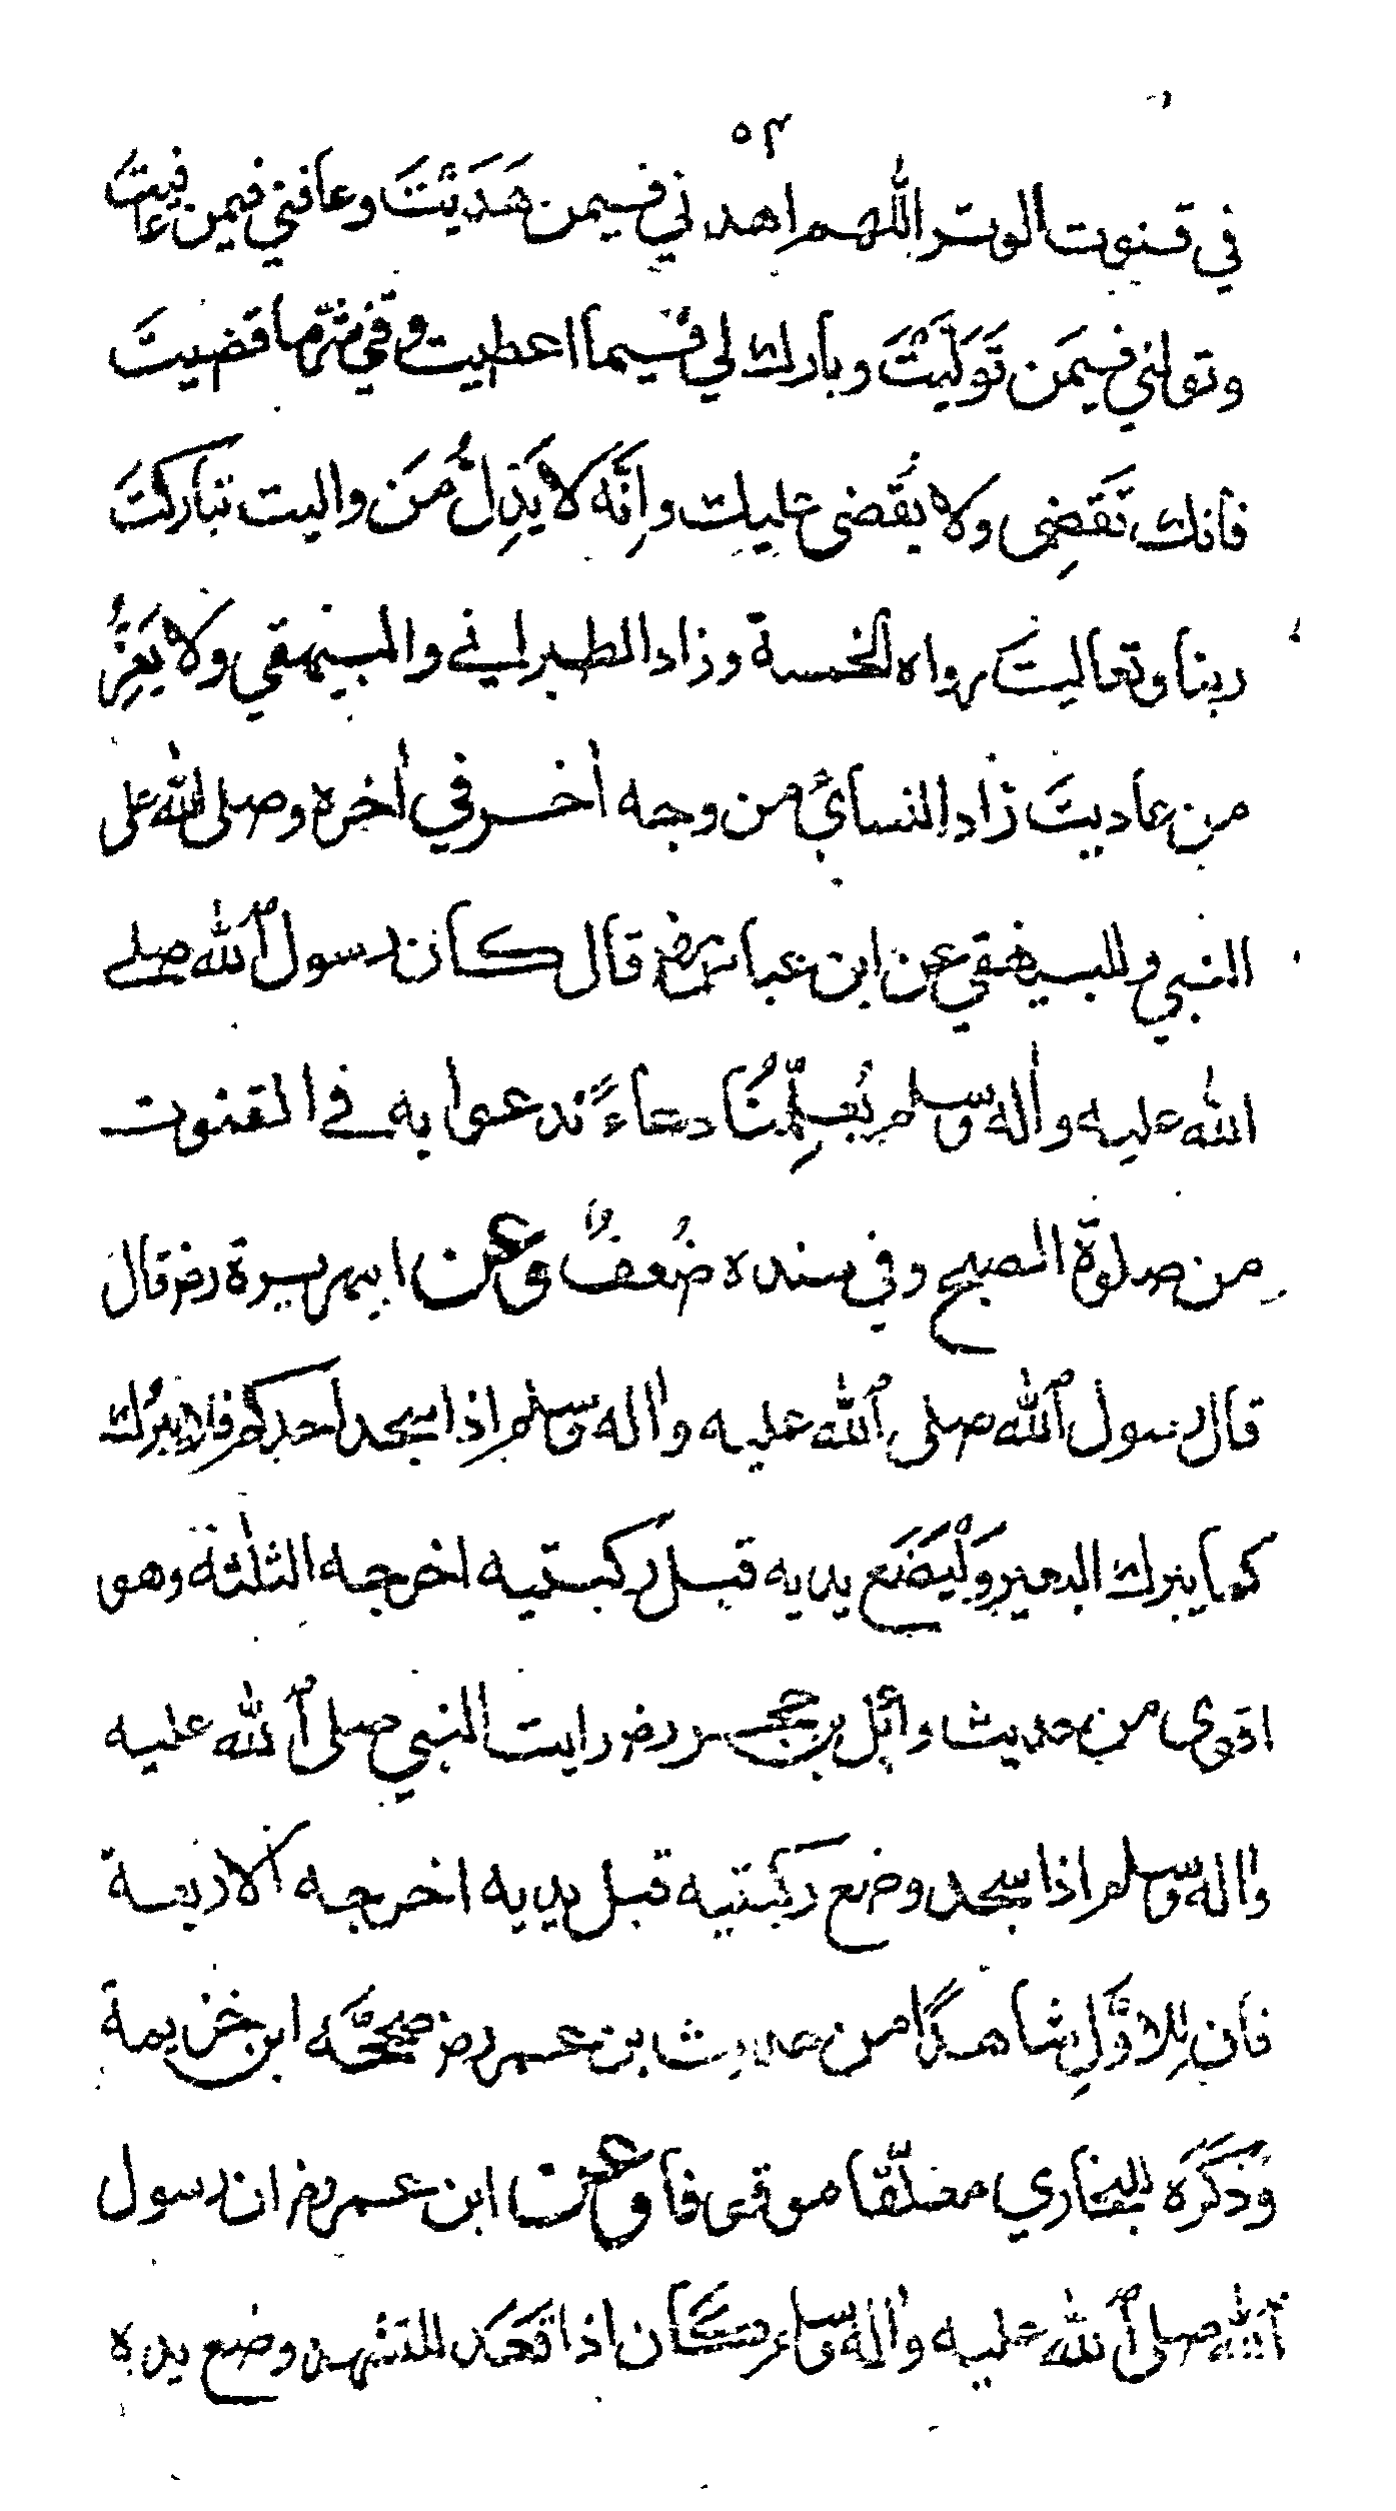 ٥٣
في قنوت الوتر اللهم اهدني فيمن هَدَيْتَ وعافني فيمن عافيتَ
وتولني فيمَن تَوَلَّيْتَ وبارك لي فيما اعطيت وقني شرّ ما قضيتَ
فانك تَقضِى ولا يُقضى عليك وإنّه لا يَذِلُّ مَن واليت تباركتَ
ربنا وتعاليت رواه الخمسة وزاد الطبراني والبيهقي ولا يَعِزُّ
من عاديتَ زاد النسائي من وجه اٰخر في اٰخره وصلى الله على
النبي وللبيهقي عن ابن عباس رض قال كان رسول الله صلى
الله عليه واٰله وسلم يُعلِّمُنَا دعاءً ندعوا به في القنوت
من صلوة الصبح وفي سنده ضُعفٌ وعن ابي هريرة رض قال
قال رسول الله صلى الله عليه واٰله وسلم اذا سجد احدكم فلا يبرُك
كما يبرك البعير وَلْيَضَع يديه قبل ركبتيه اخرجه الثلٰثة وهو
اقوى من حديث وائل بن حجر رض رايت النبي صلى الله عليه
واٰله وسلم اذا سجد وضع ركبتيه قبل يديه اخرجه الاربعة
فان لِلاوَّلِ شاهدًا من حديث بن عمر رض صححَّه ابن خزيمة
وَذكَرَه البخاري معلّقا موقوفا وعن ابن عمر رض ان رسول
الله صلى الله عليه واٰله وسلم كان اذا قَعَدَ للتشهد وضع يده